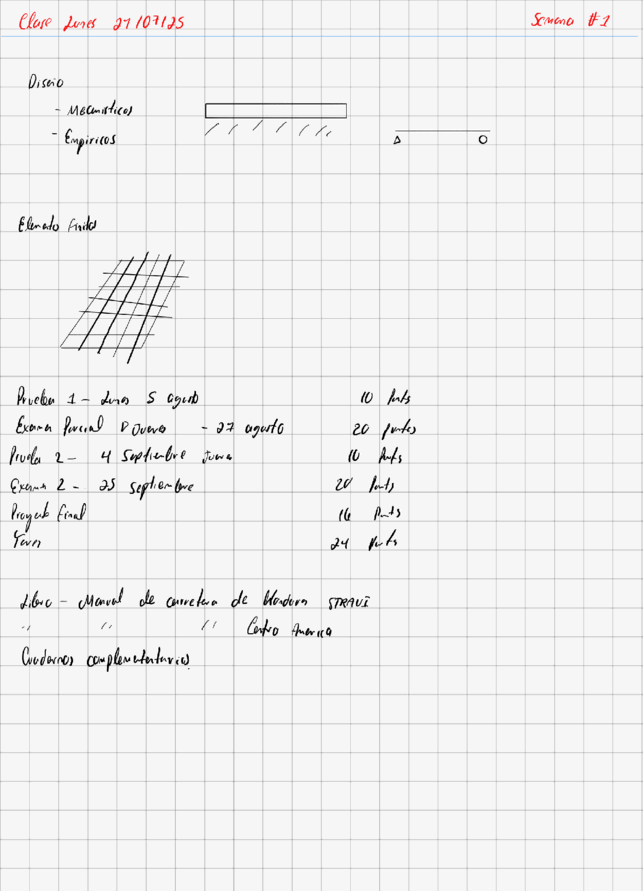 Clase Lunes 21/07/25
Semana #1
Diseño
- Mecanisticos
- Empiricos
Elemento Finitos
Prueba 1 - Lunes 5 agosto 10 Punts
Examen Parcial Jueves - 27 agosto 20 puntos
Prueba 2 - 4 Septiembre Jueves 10 Punts
Examen 2 - 25 septiembre 20 Punts
Proyecto Final 16 Punts
24 Punts
Libro - Manual de carretera de SIRAVI
" " " Centro America
Cuadernos complementarios